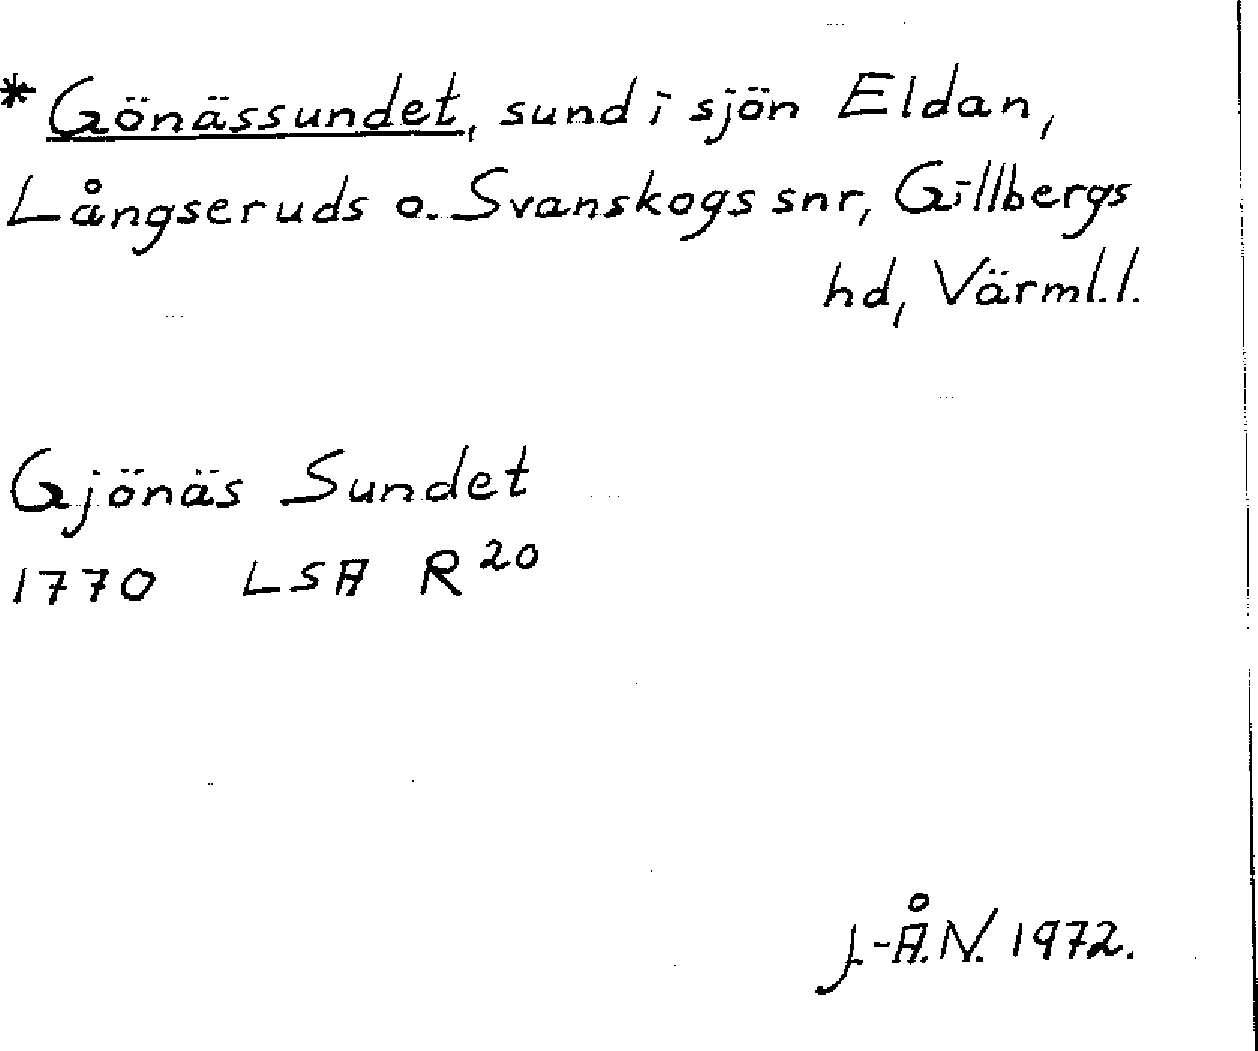 *Gönässundet, sund i sjön Eldan,
Långseruds o. Svanskogs snr, Gillbergs
hd, Värml.l.
Gjönäs Sundet
1770 LSA R 20
J.-Å.N. 1972.